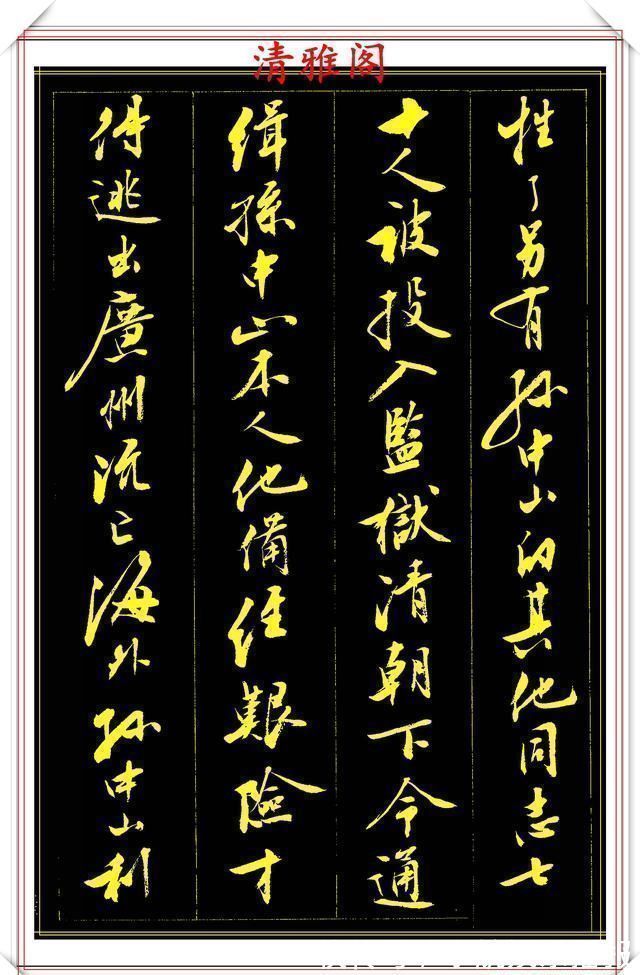 清雅阁
牲了另有孙中山的其他同志七
十人被投入監獄清朝下令通
缉孫中山本人他備经艱險才
得逃出廣州流亡海外孙中山利